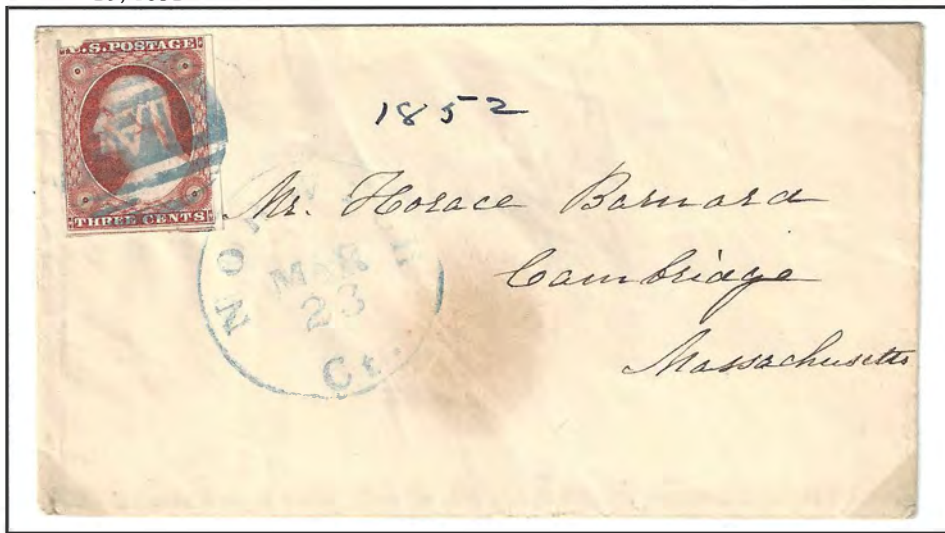 U.S.POSTAGE
THREE CENTS
1852
Mr. Horace Barnard
Cambridge
Massachusetts
MAR
23
Ct.